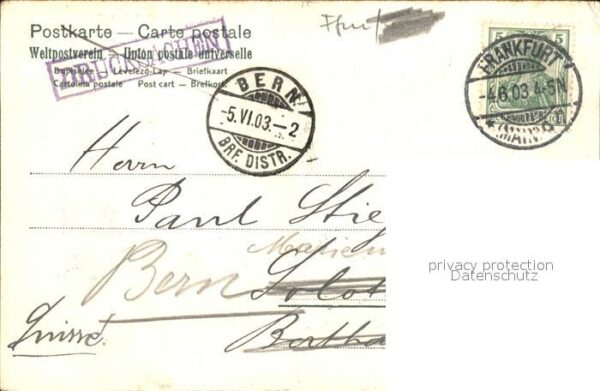 Postkarte — Carte postale
Weltpostverein — Union postale universelle
Dopisnice — Levelező-Lap — Briefkaart
Cartolina postale Post cart — Brefkort
DRUCKSACHEN
Ffurt
5 5
FRANKFURT
-4.6.03. 4-5N.
* (MAIN)
BERN
-5.VI.03.-2
BRF. DISTR.
Herrn
Paul Stie
Bern
Solot
Suisse
privacy protection
Datenschutz